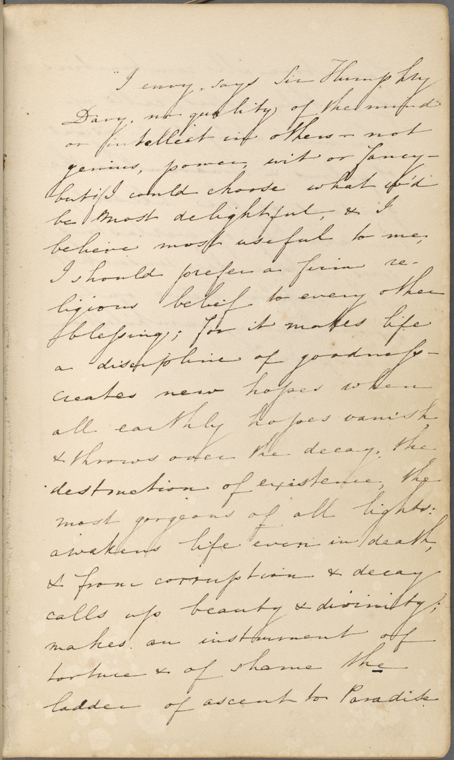 "I envy, says Sir Humphry
Davy, no quality, of the mind
or intellect in others – not
genius, power, wit or fancy –
but if I could choose what w'd
be most delightful, & I
believe most useful to me,
I should prefer a firm re-
ligious belief to every other
blessing; for it makes life
a discipline of goodness –
creates new hopes when
all earthly hopes vanish
& throws over the decay, the
destruction of existence, the
most gorgeous of all lights:
awakens life even in death,
& from corruption & decay
calls up beauty & divinity;
makes an instrument of
torture & of shame the
ladder of ascent to Paradise